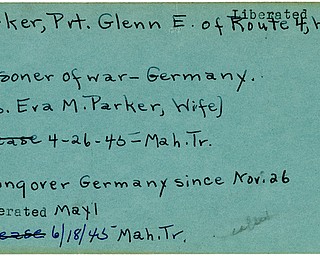 Liberated
rker, Pvt. Glenn E. of Route 4, W
soner of war - Germany.
s. Eva M. Parker, Wife)
ease 4-26-45 - Mah. Tr.
ing over Germany since Nov. 26
erated May 1
ease 6/18/45 - Mah. Tr.